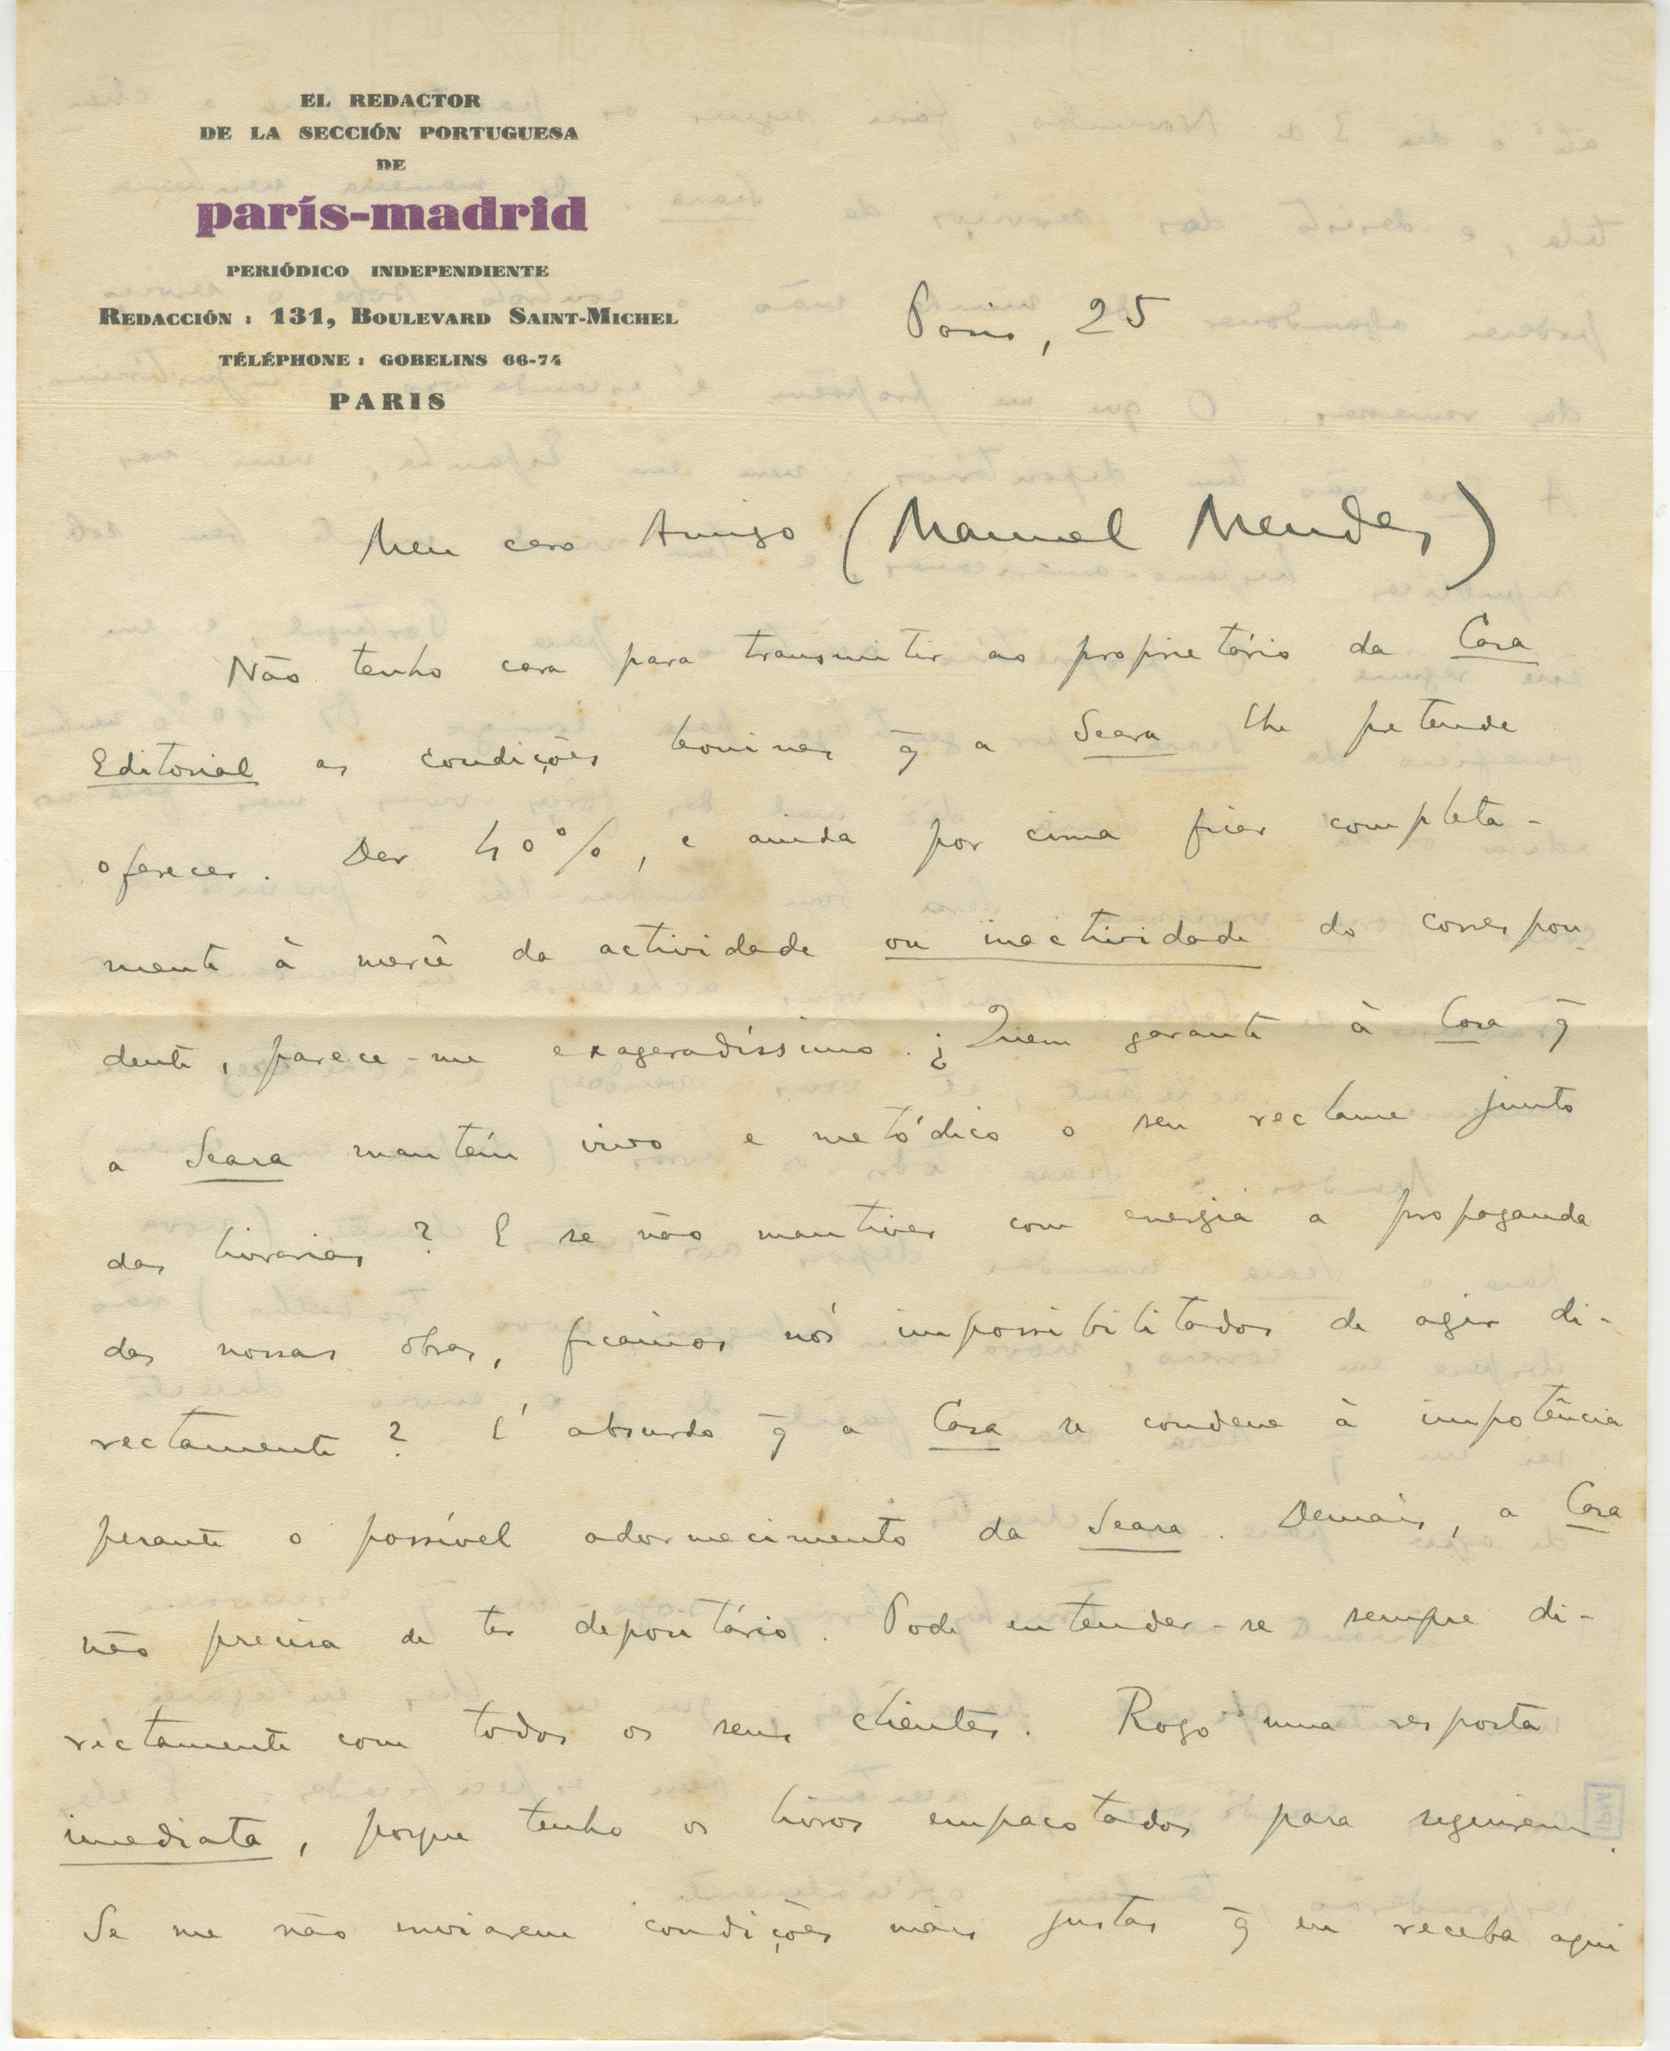 EL REDACTOR
DE LA SECCIÓN PORTUGUESA
DE
parís-madrid
PERIÓDICO INDEPENDIENTE
REDACCIÓN : 131, BOULEVARD SAINT-MICHEL
TÉLÉPHONE : GOBELINS 66-74
PARIS
Paris, 25
Meu caro Amigo (Manuel Mendes)
Não tenho cara para transmitir ao proprietário da Casa
Editorial as condições leoninas q̃ a Seara lhe pretende
oferecer. Dar 40%, e ainda por cima ficar completa-
mente à mercê da actividade ou inactividade do correspon-
dente, parece-me exageradíssimo. ¿Quem garante à Casa q̃
a Seara mantém vivo e metódico o seu reclame junto
das livrarias? E se não mantiver com energia a propaganda
das nossas obras, ficamos nós impossibilitados de agir di-
rectamente? É absurdo q̃ a Casa se condene à impotência
perante o possível adormecimento da Seara. Demais, a Casa
não precisa de ter depositário. Pode entender-se sempre di-
rectamente com todos os seus clientes. Rogo uma resposta
imediata, porque tenho os livros empacotados para seguirem.
Se me não enviarem condições mais justas q̃ eu receba aqui